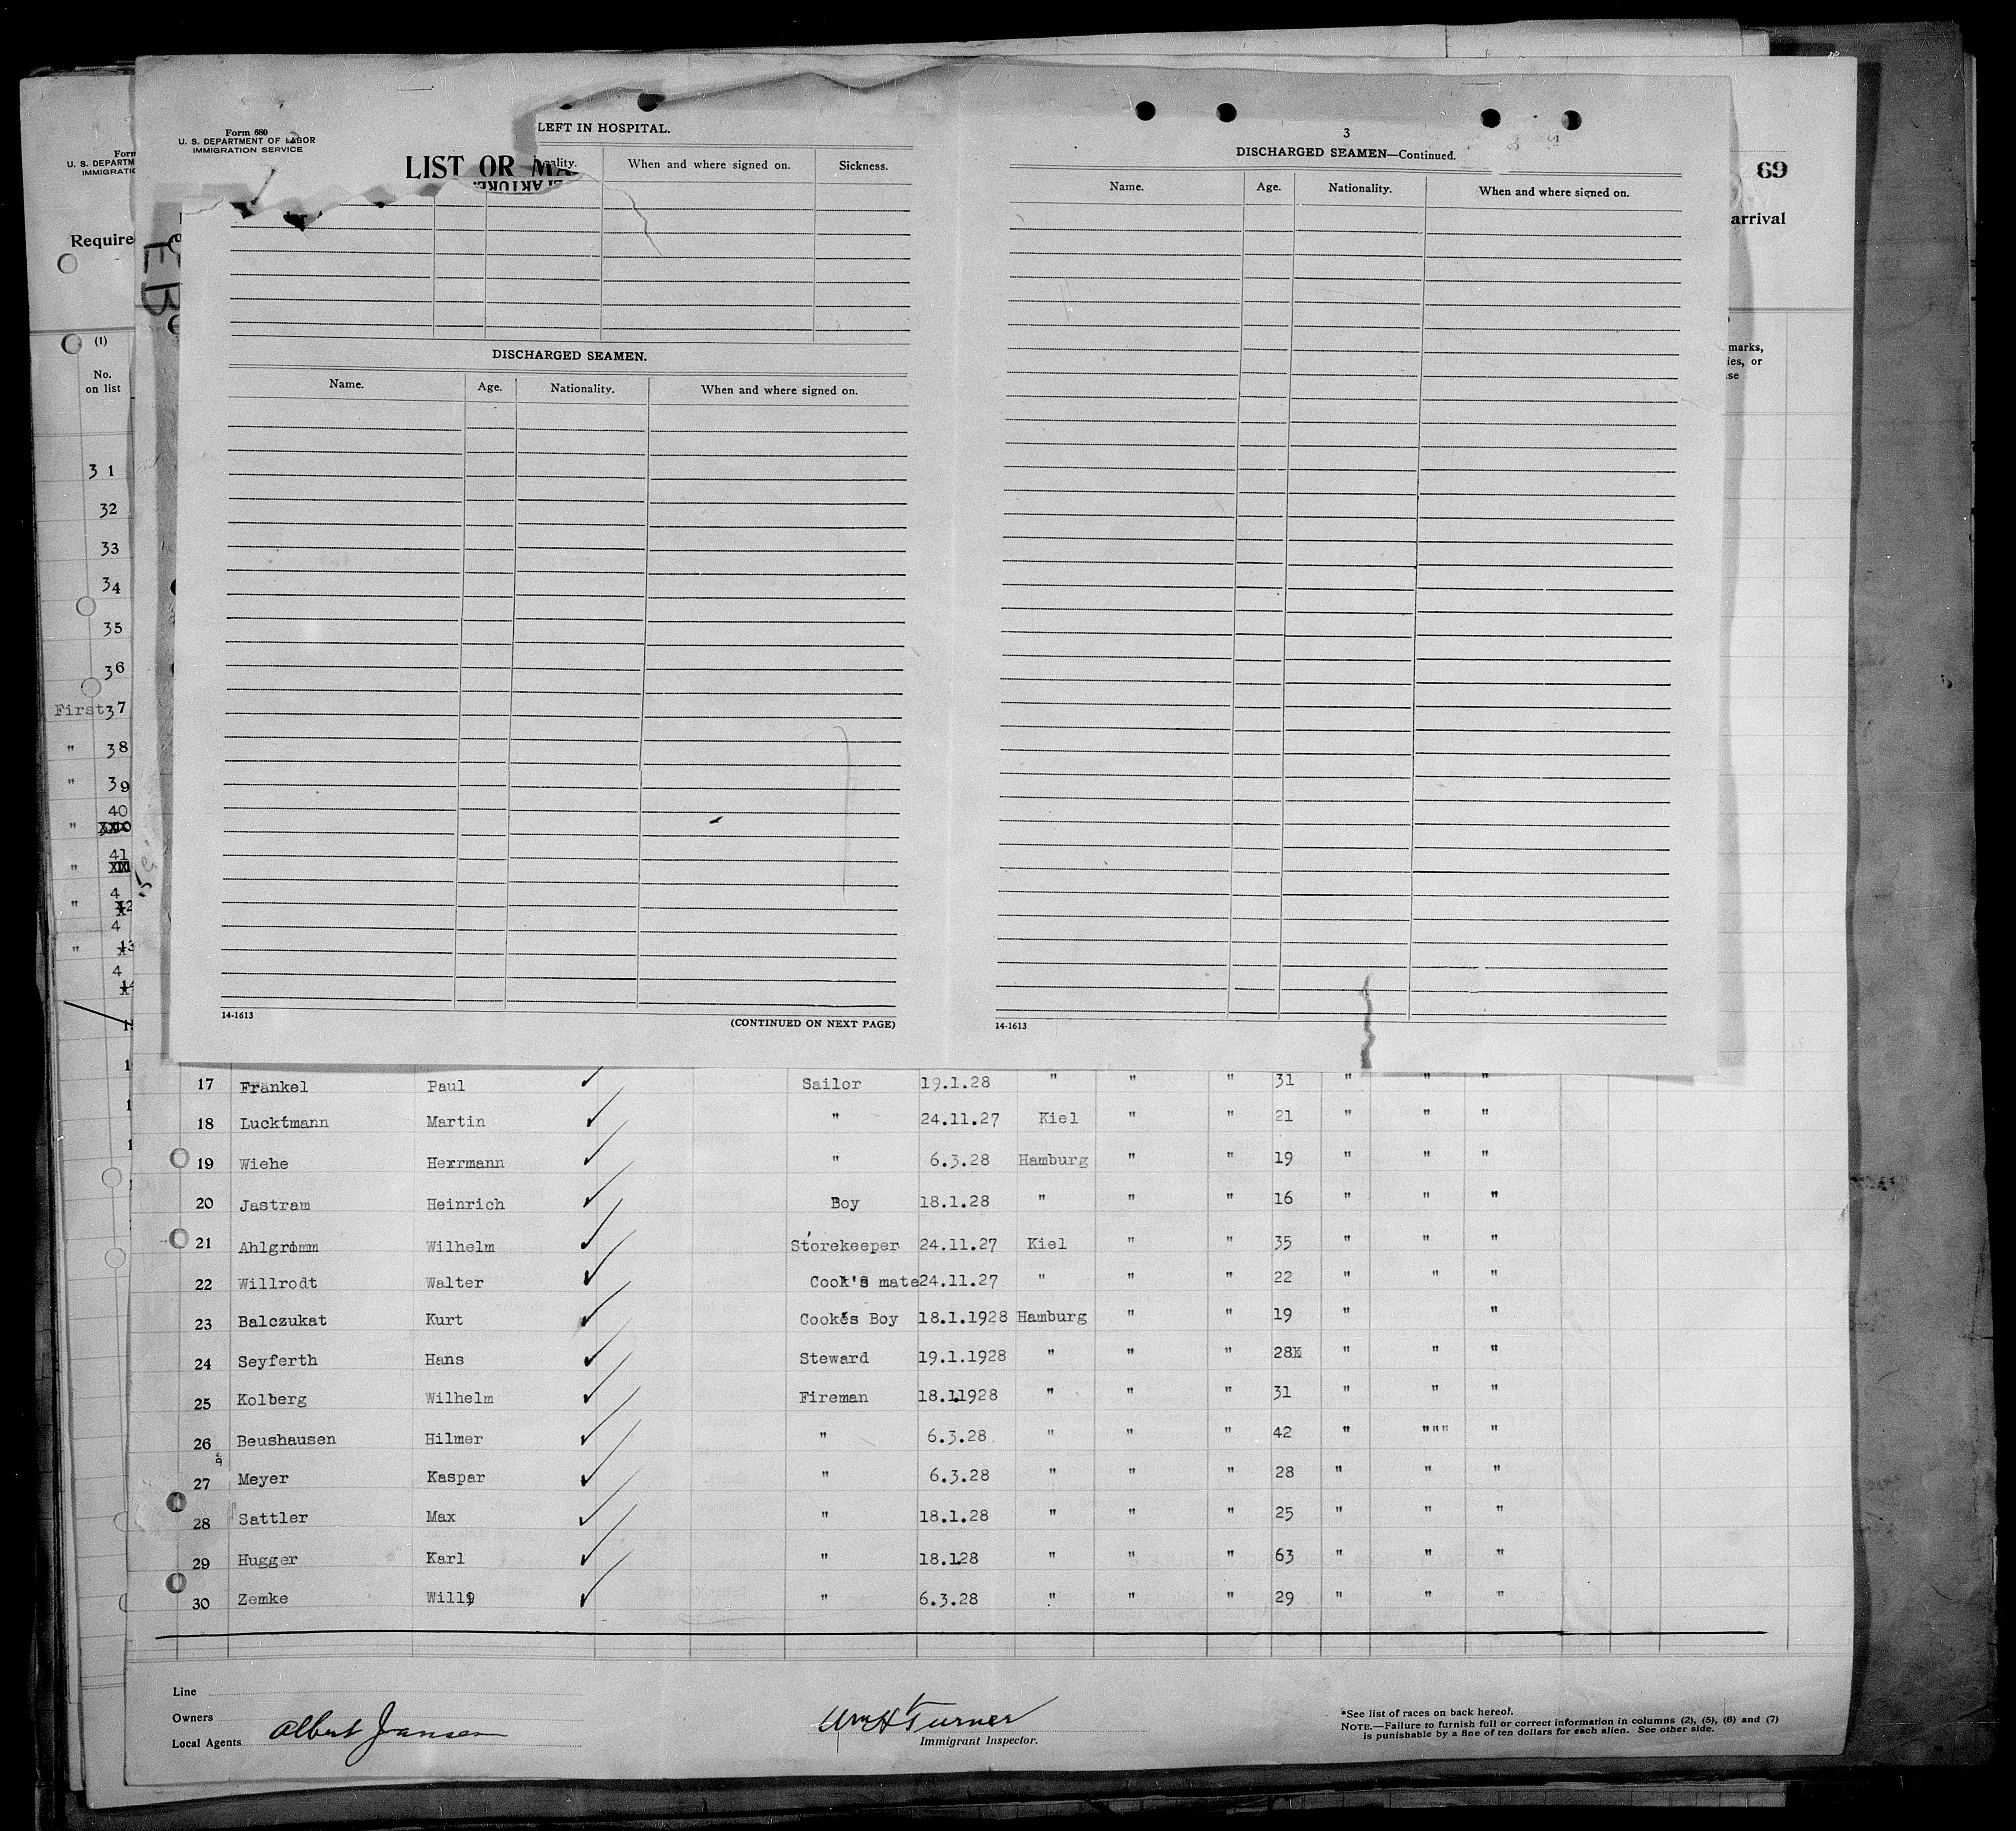 Form 680
U. S. DEPARTMENT OF LABOR
IMMIGRATION SERVICE
LIST OR
LEFT IN HOSPITAL.
When and where signed on. Sickness.
DISCHARGED SEAMEN.
Name. Age. Nationality. When and where signed on.
14-1613 (CONTINUED ON NEXT PAGE)
3
DISCHARGED SEAMEN—Continued.
Name. Age. Nationality. When and where signed on.
14-1613
69
arrival
marks,
ies, or
se
Form
U. S. DEPARTM
IMMIGRATIO
Require
(1)
No.
on list
31
32
33
34
35
36
First 37
" 38
" 39
" 40
" 41
17 Frankel Paul Sailor 19.1.28 " " " 31 " " "
18 Lucktmann Martin " 24.11.27 Kiel " " 21 " " "
19 Wiehe Herrmann " 6.3.28 Hamburg " " 19 " " "
20 Jastram Heinrich Boy 18.1.28 " " " 16 " " "
21 Ahlgrimm Wilhelm Storekeeper 24.11.27 Kiel " " 35 " " "
22 Willrodt Walter Cook's mate 24.11.27 " " " 22 " " "
23 Balczukat Kurt Cook's Boy 18.1.1928 Hamburg " " 19 " "
24 Seyferth Hans Steward 19.1.1928 " " " 28 " " "
25 Kolberg Wilhelm Fireman 18.1.1928 " " " 31 " " "
26 Beushausen Hilmer " 6.3.28 " " " 42 " """ "
27 Meyer Kaspar " 6.3.28 " " " 28 " " "
28 Sattler Max " 18.1.28 " " " 25 " " "
29 Hugger Karl " 18.1.28 " " " 63 " " "
30 Zemke Willy " 6.3.28 " " " 29 " " "
Line
Owners
Local Agents Albert Jansen
Wm H Turner
Immigrant Inspector.
*See list of races on back hereof.
NOTE.—Failure to furnish full or correct information in columns (2), (5), (6) and (7)
is punishable by a fine of ten dollars for each alien. See other side.